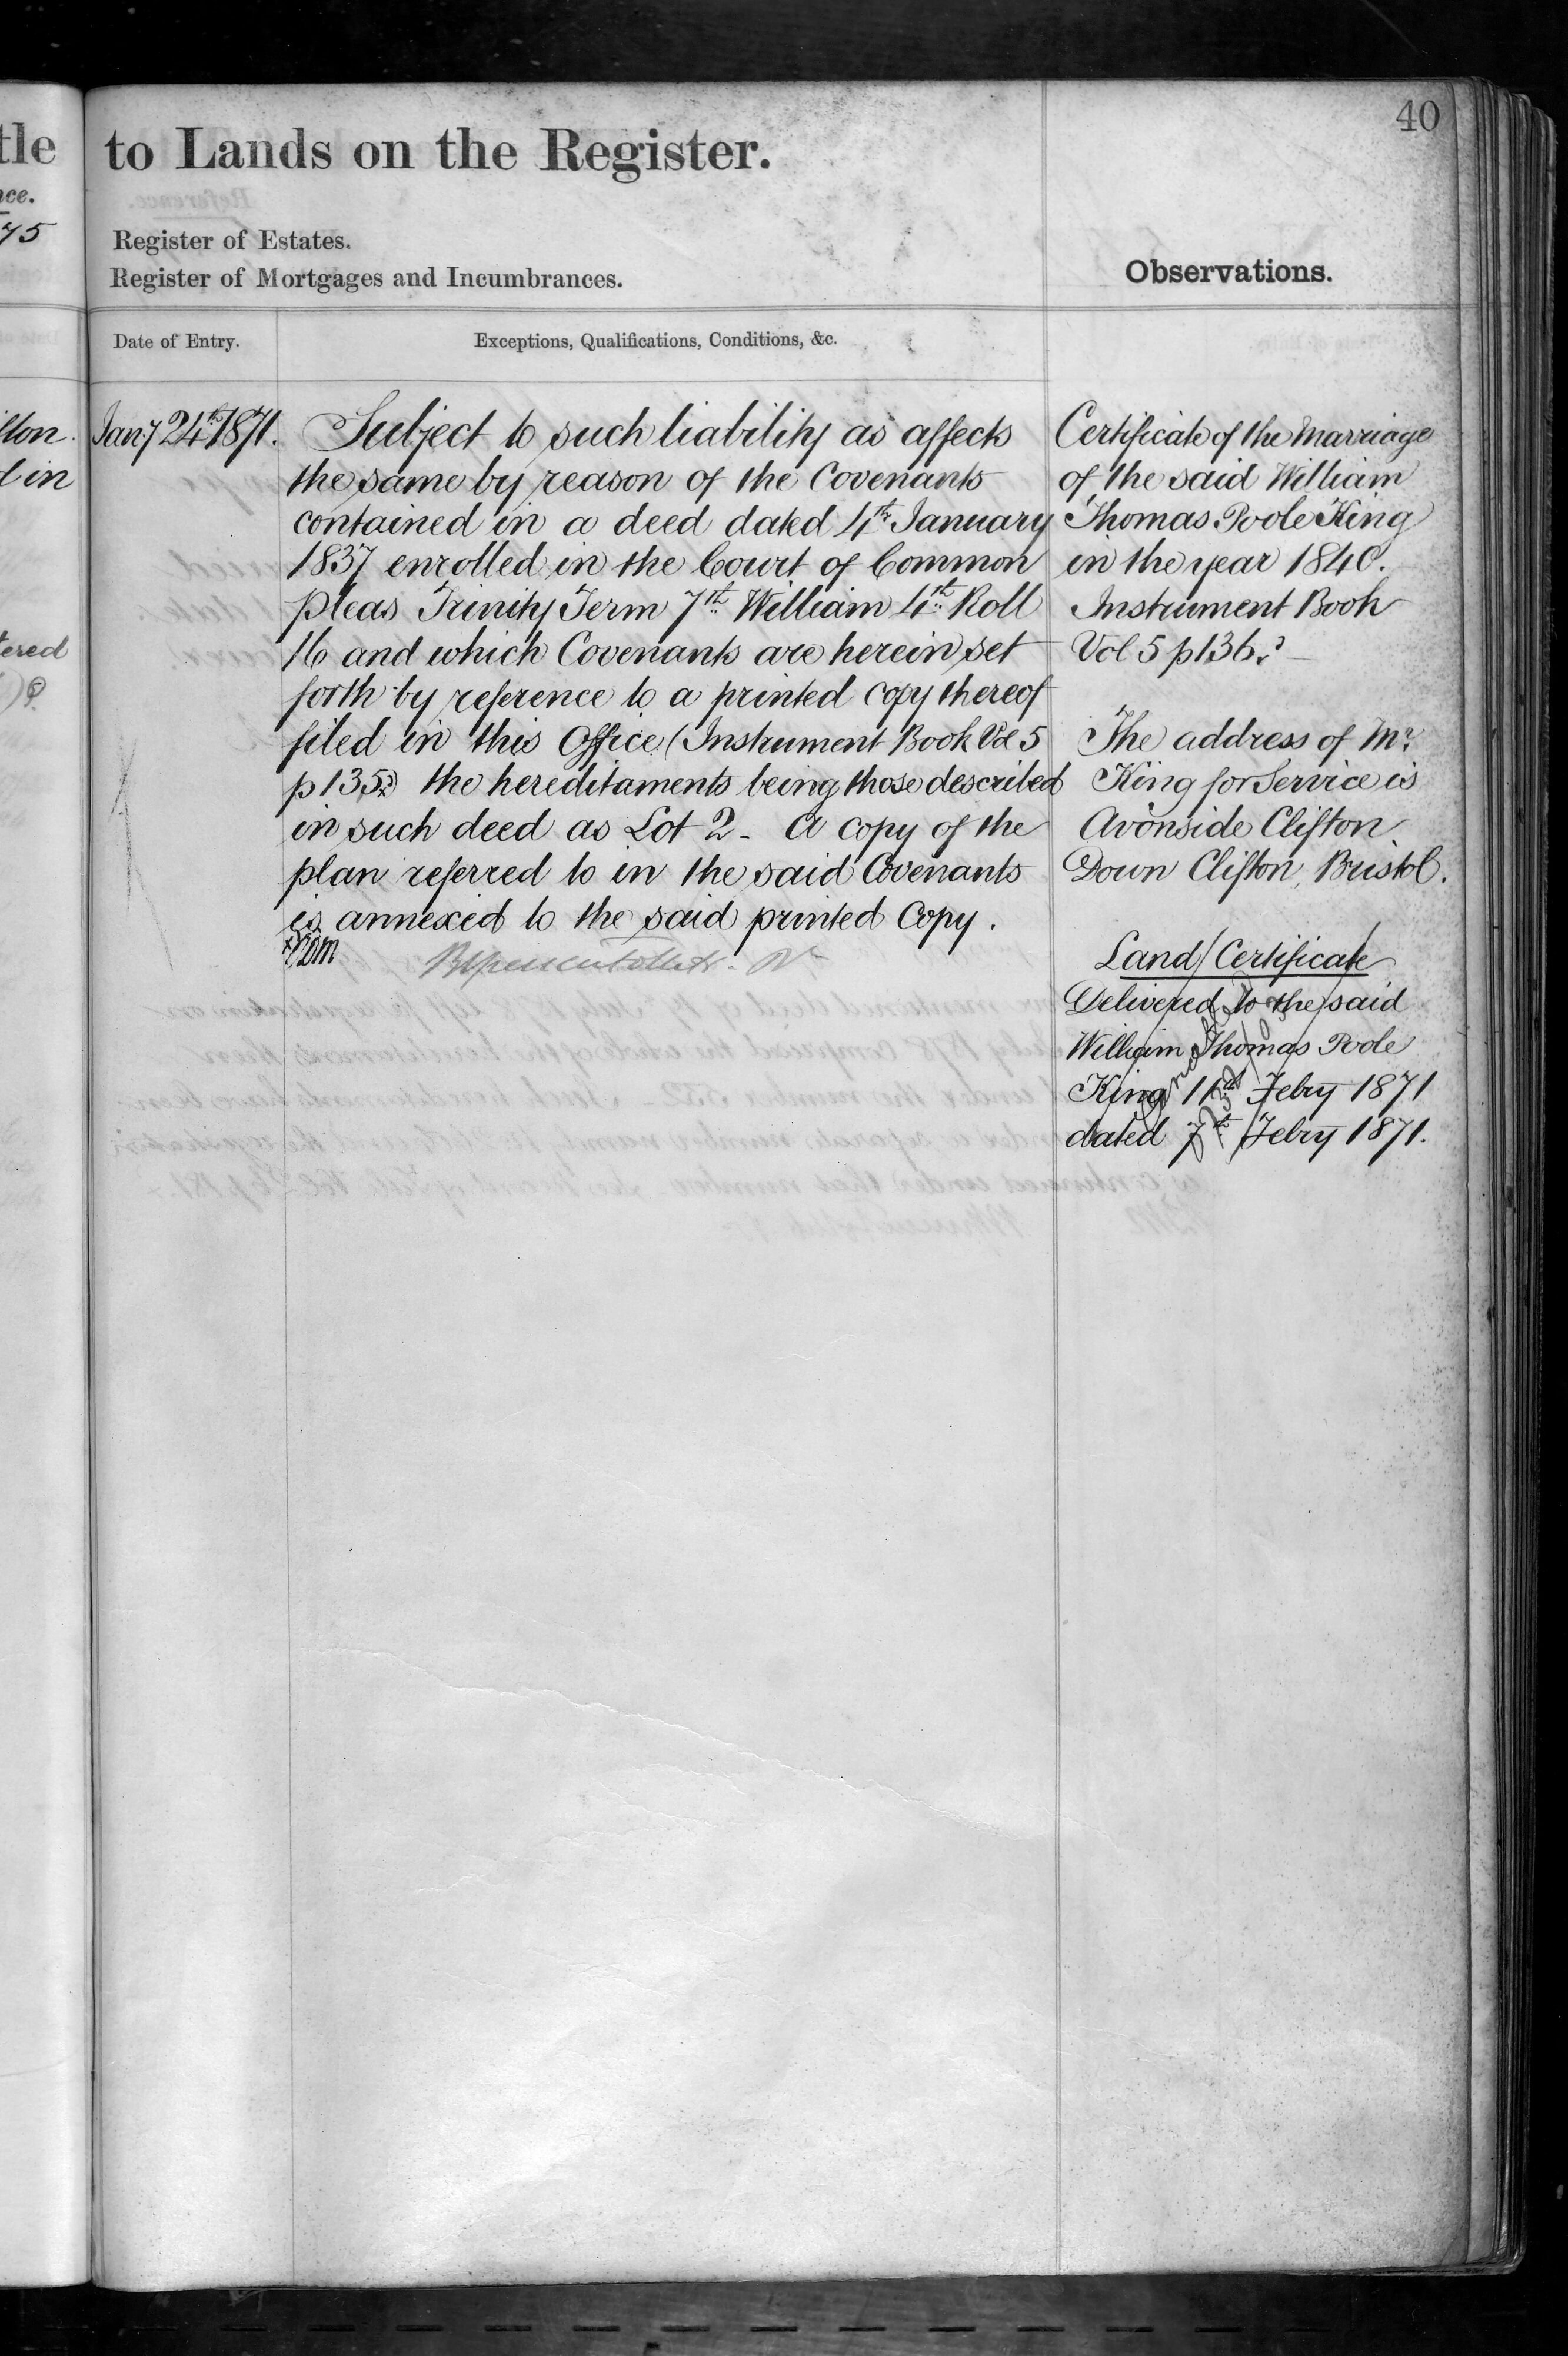 40
tle
to Lands on the Register.
nce.
75
Register of Estates.
Register of Mortgages and Incumbrances.
Observations.
Date of Entry.
Exceptions, Qualifications, Conditions, &c.
Jany 24th 1871.
Subject to such liability as affects
the same by reason of the Covenants
contained in a deed dated 4th January
1837 enrolled in the Court of Common
pleas Trinity Term 7th William 4th Roll
16 and which Covenants are herein set
forth by reference to a printed copy thereof
filed in this Office (Instrument Book Vol 5
p 135) the hereditaments being those described
in such deed as Lot 2 - A copy of the
plan referred to in the said Covenants
is annexed to the said printed Copy.
Certificate of the Marriage
of the said William
Thomas Poole King
in the year 1840.
Instrument Book
Vol 5 p 136.
The address of Mr.
King for Service is
Avonside Clifton
Down Clifton, Bristol.
Land Certificate
Delivered to the said
William Thomas Poole
King 11th Febry 1871
dated 7th Febry 1871.
lton.
d in
tered